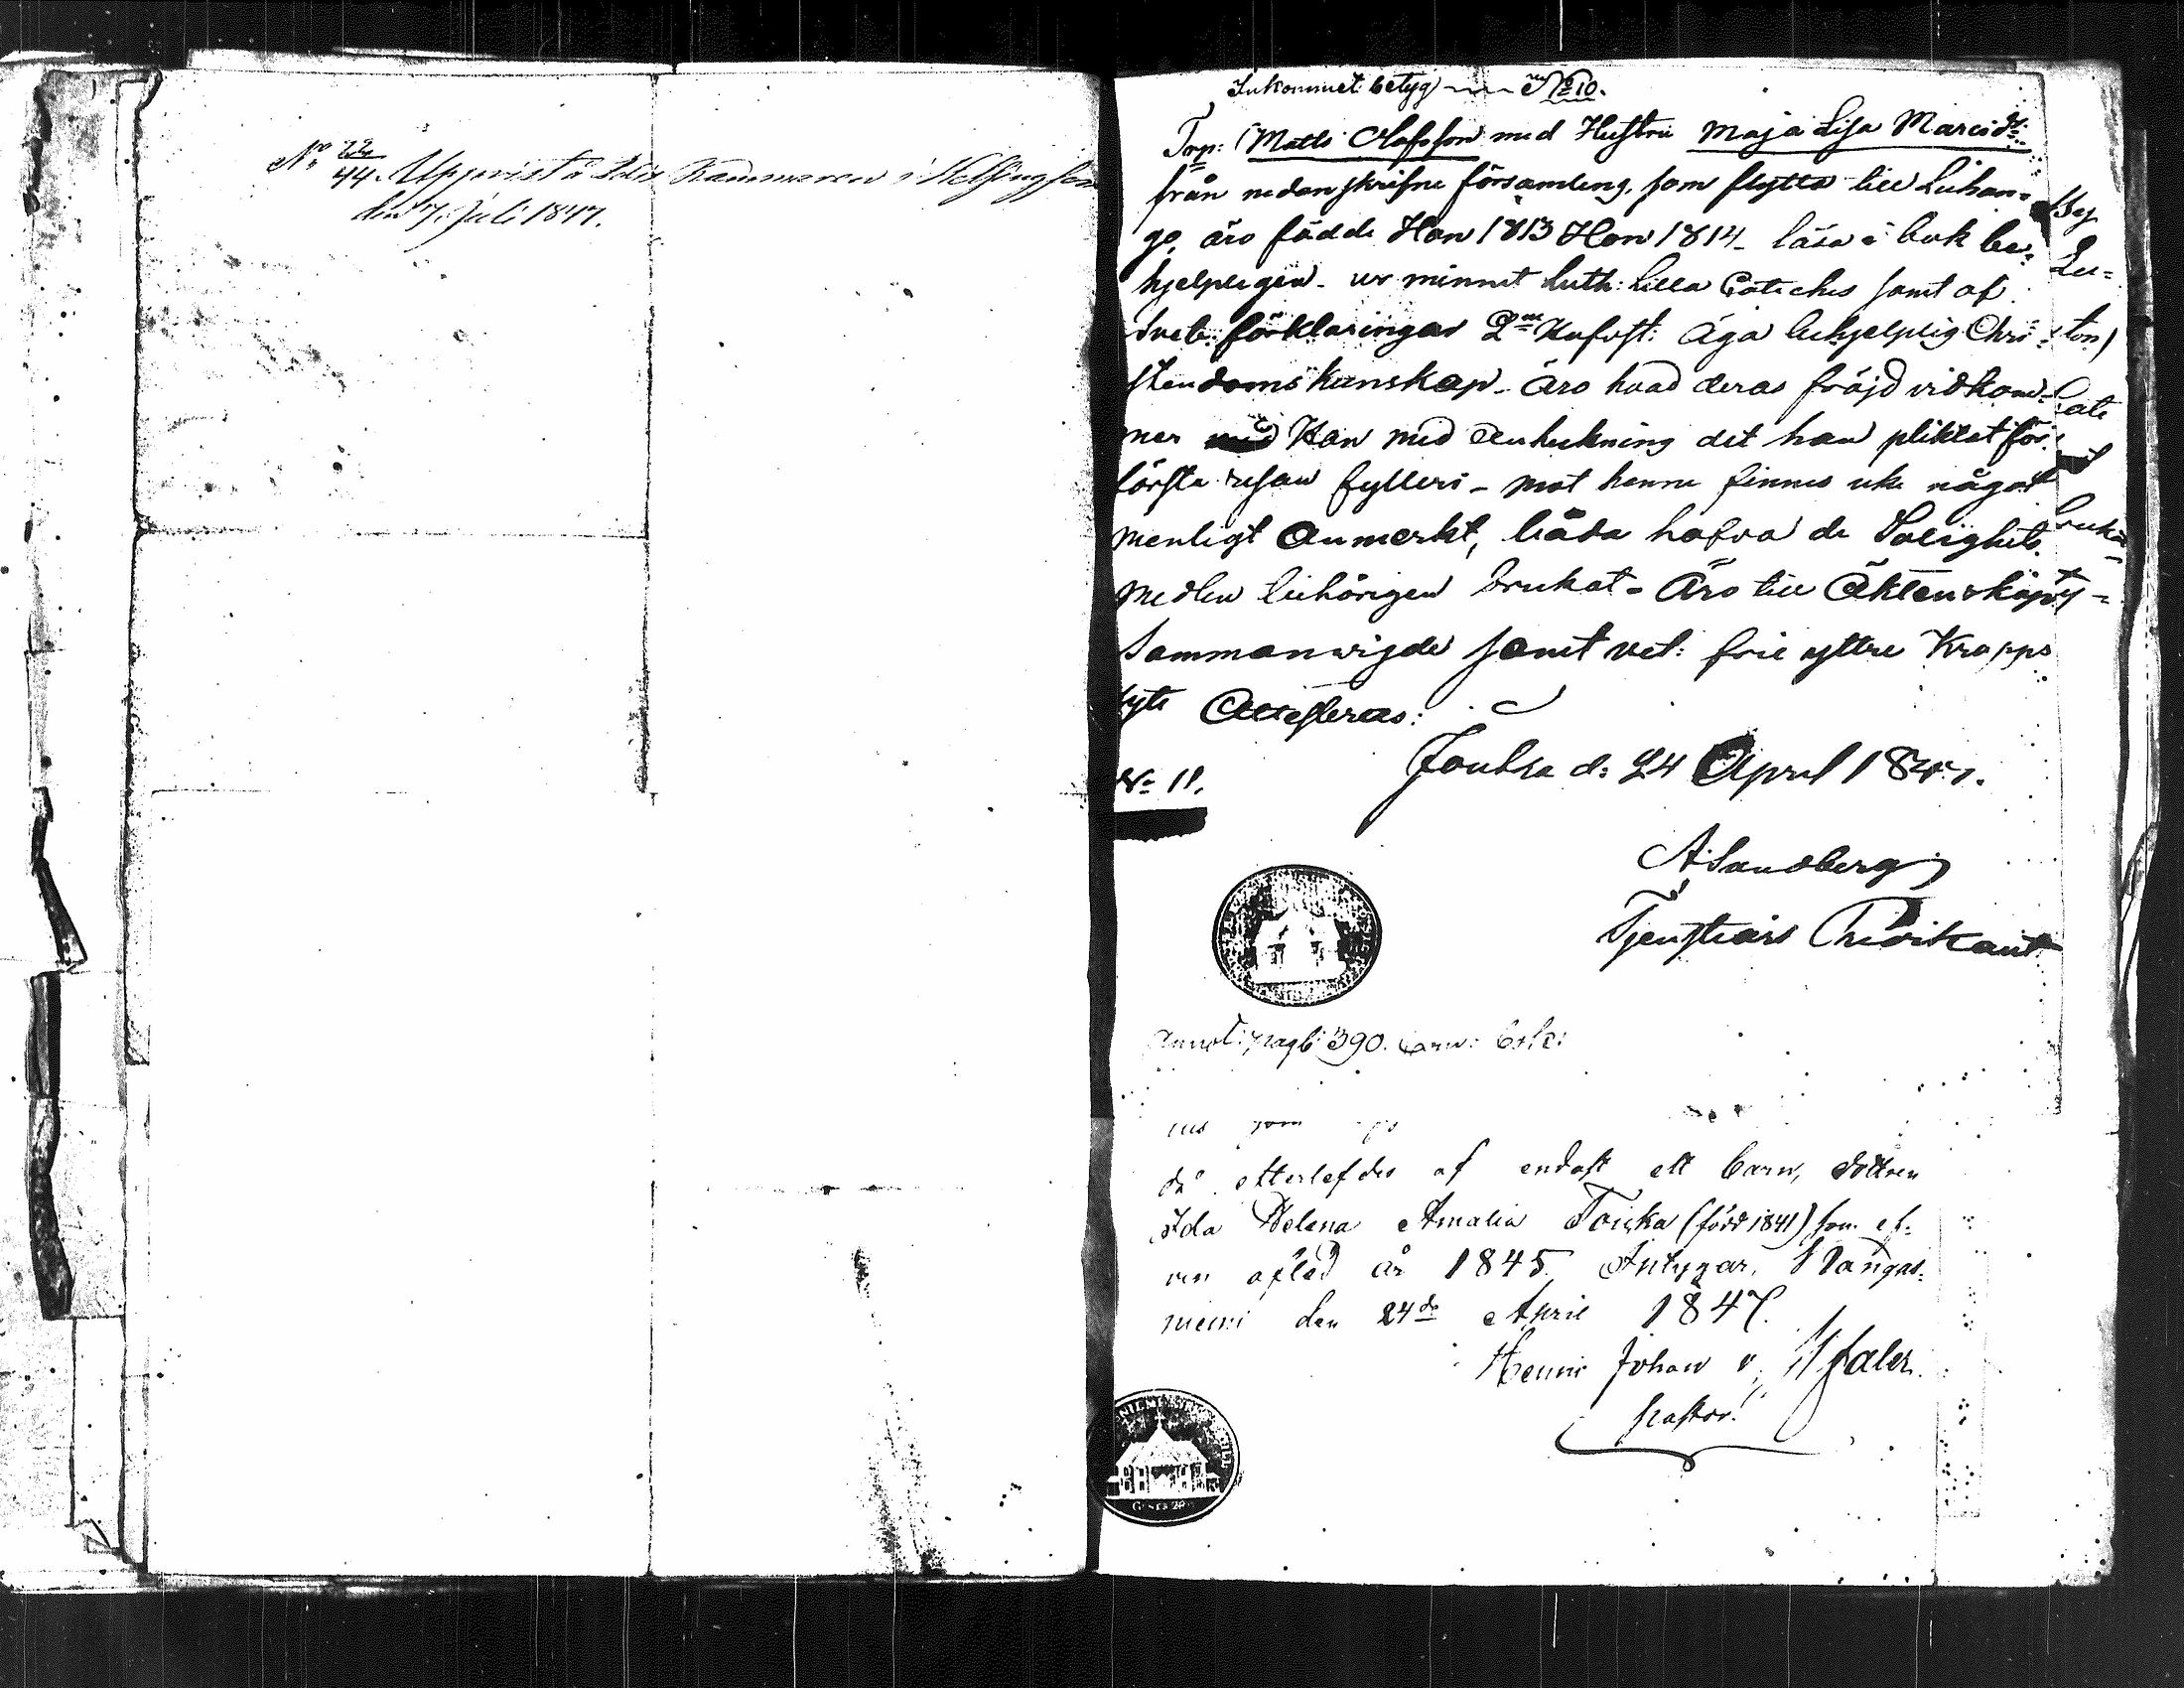 No 22/44. Uppvist å Polis Kammaren i Helsingfors
den 7. Juli 1847.
Inkommet betyg No 10.
Torp: Matts Olofsson med Hustru Maja Lisa Marcidr:
från nedanskrifne församling, som flytta till Luhan-
go, äro födde Han 1813 Hon 1814 - läsa i bok be-
hjelpligen - ur minnet Luth: Lilla Cateches samt af
Sveb: förklaringar 2ne Hufvst: Äga behjelplig Chri-
stendoms kunskap - Äro hvad deras fräjd vidkom-
mer Han med anmerkning det han pliktat för
första resan fylleri - mot henne finnes icke något
menligt anmerkt, båda hafva de Salighets
medlen tillbörligen brukat - Äro till Äktenskap
sammanvigde samt vet: frie yttre Kropps
lyte Attesteras:
Joutsa d: 24 April 1847.
No 11.
A Sandberg
Tjenstårs Predikant
Annot: pag 390. Barn: bok:
som
då efterlefdes af endast ett barn, dottren
Ida Helena Amalia Toicka (född 1841) som ef-
ven afled år 1845. Intygar, Kangas-
niemi den 24de April 1847.
Henric Johan
pastor.